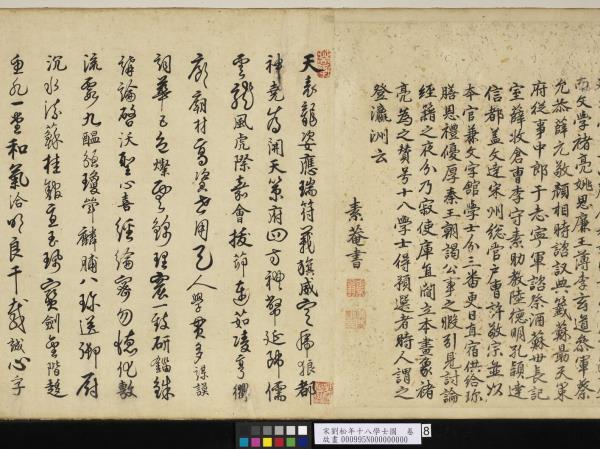 南文學褚亮姚思廉主簿李玄道參軍蔡
允恭薛元敬顏相時諮議典籤蘇勗天策
府從事中郎于志寧軍諮祭酒蘇世長記
室薛收倉曹李守素助教陸德明孔穎達
信都蓋文達宋州總管戶曹許敬宗並以
本官兼文字館學士分三番更日直宿供給珍
膳恩禮優厚秦王朝謁公事之暇引見討論
經籍之夜分乃寢使庫直閻立本畫象褚
亮為之贊號十八學士得預選者時人謂之
登瀛洲云
素菴書
天表龍姿應瑞符義旗威定虎狼都
神堯首開天策府四方神幣延碩儒
雲龍風虎際嘉會拔茹連茹凌亨衢
廊廟材高資世用天人學貫多謀謨
詞華五色燦雲錦理窟一致研錙銖
講論啓沃聖心喜經綸密勿德化敷
流霞九醞瓊筵麟脯八珍送御厨
沉水桂玉寶劍金階趨
魚水一堂和氣洽明良千載誠心孚
宋劉松年十八學士圖 卷
故畫 000995N000000000
8